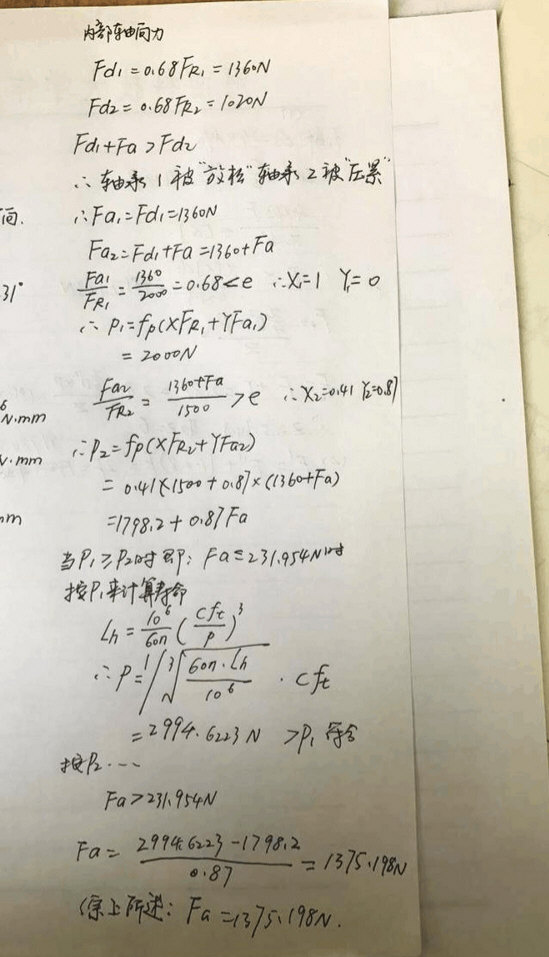 内部轴向力
Fd1=0.68FR1=1360N
Fd2=0.68FR2=1020N
Fd1+Fa>Fd2
∴轴承1被"放松"轴承2被"压紧"
间.
∴Fa1=Fd1=1360N
Fa2=Fd1+Fa=1360+Fa
31°
Fa1/FR1=1360/2000=0.68<e ∴X1=1 Y1=0
∴P1=fp(XFR1+YFa1)
=2000N
Fa2/FR2=(1360+Fa)/1500>e ∴X2=0.41 Y2=0.87
6
N.mm
∴P2=fp(XFR2+YFa2)
N.mm
=0.41×1500+0.87×(1360+Fa)
=1798.2+0.87Fa
mm
当P1≥P2时 即: Fa≤231.954N时
按P1来计算寿命
Lh=10^6/60n(Cft/P)^3
∴P=1/∛(60n·Lh/10^6)·Cft
=2994.6223N >P1 符合
按P2····
Fa>231.954N
Fa=(2994.6223-1798.2)/0.87=1375.198N
综上所述: Fa=1375.198N.